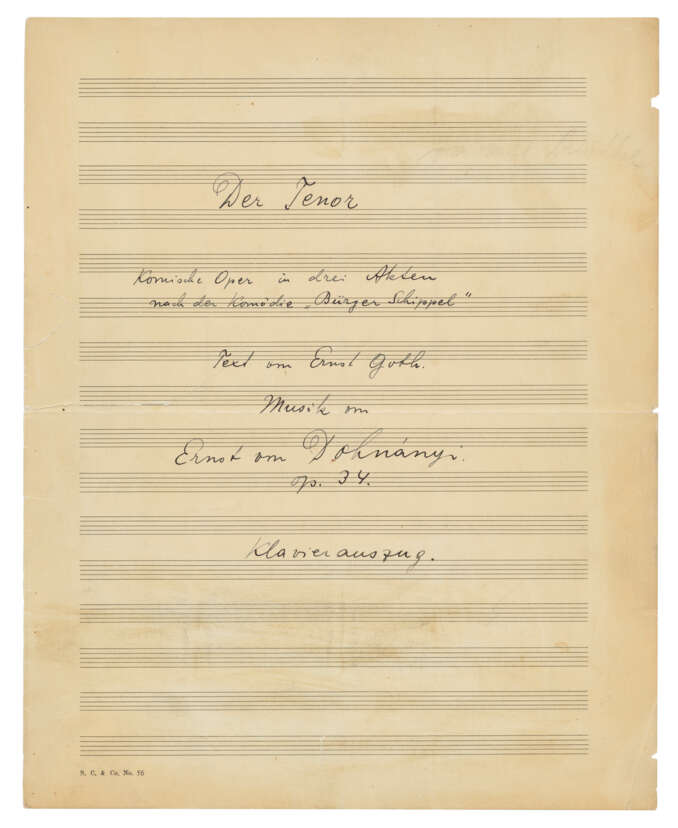 Der Tenor
Komische Oper in drei Akten
nach der Komödie „Bürger Schippel"
Text von Ernst Goth.
Musik von
Ernst von Dohnányi.
op. 34.
Klavierauszug.